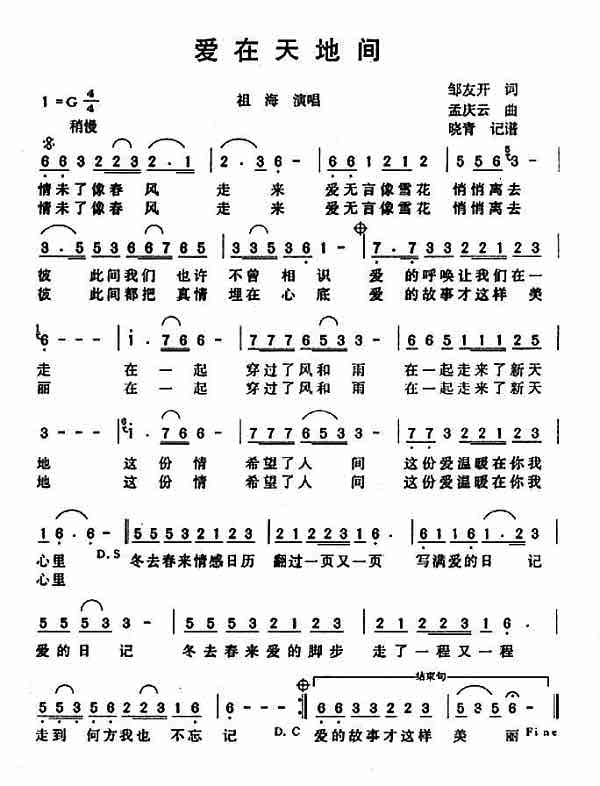 爱在天地间
1=G 4/4
祖海 演唱
邹友开 词
孟庆云 曲
晓青 记谱
稍慢
6 6 3 2 2 3 2 . 1 | 2 . 3 - - | 6 6 1 2 1 2 | 5 5 6 3 -
情未了像春风 走来 爱无言像雪花 悄悄离去
情未了像春风 走来 爱无言像雪花 悄悄离去
3 . 5 5 3 6 6 7 6 5 | 3 3 5 3 6 1 - | 7 . 7 3 3 2 2 1 2 3
彼 此间我们 也许 不曾相识 爱的呼唤让我们在一
彼 此间都把 真情 埋在心底 爱的故事才这样美
6 - - - | 1 . 7 6 6 - | 7 7 7 6 5 3 3 - | 6 6 5 1 1 1 2 5
走 在一起 穿过了风和雨 在一起走来了新天
丽 在一起 穿过了风和雨 在一起走来了新天
3 - - - | 1 . 7 6 6 - | 7 7 7 6 5 3 3 - | 7 7 2 2 2 1 2 3
地 这份情 希望了人间 这份爱温暖在你我
地 这份情 希望了人间 这份爱温暖在你我
1 6 . 6 - | 5 5 5 3 2 1 2 3 | 2 1 2 2 3 1 6 . | 6 1 1 6 1 . 6 1
心里 D.S 冬去春来情感日历 翻过一页又一页 写满爱的日记
心里
5 5 5 3 3 - | 5 5 5 3 2 1 2 3 | 2 1 2 2 3 1 6 -
爱的日记 冬去春来爱的脚步 走了一程又一程
5 5 3 5 6 2 2 1 2 1 2 | 6 - - - | 6 6 3 3 2 2 3 | 5 . 5 5 6 -
结束句
走到何方我也不忘记 D.C 爱的故事才这样美丽 Fine